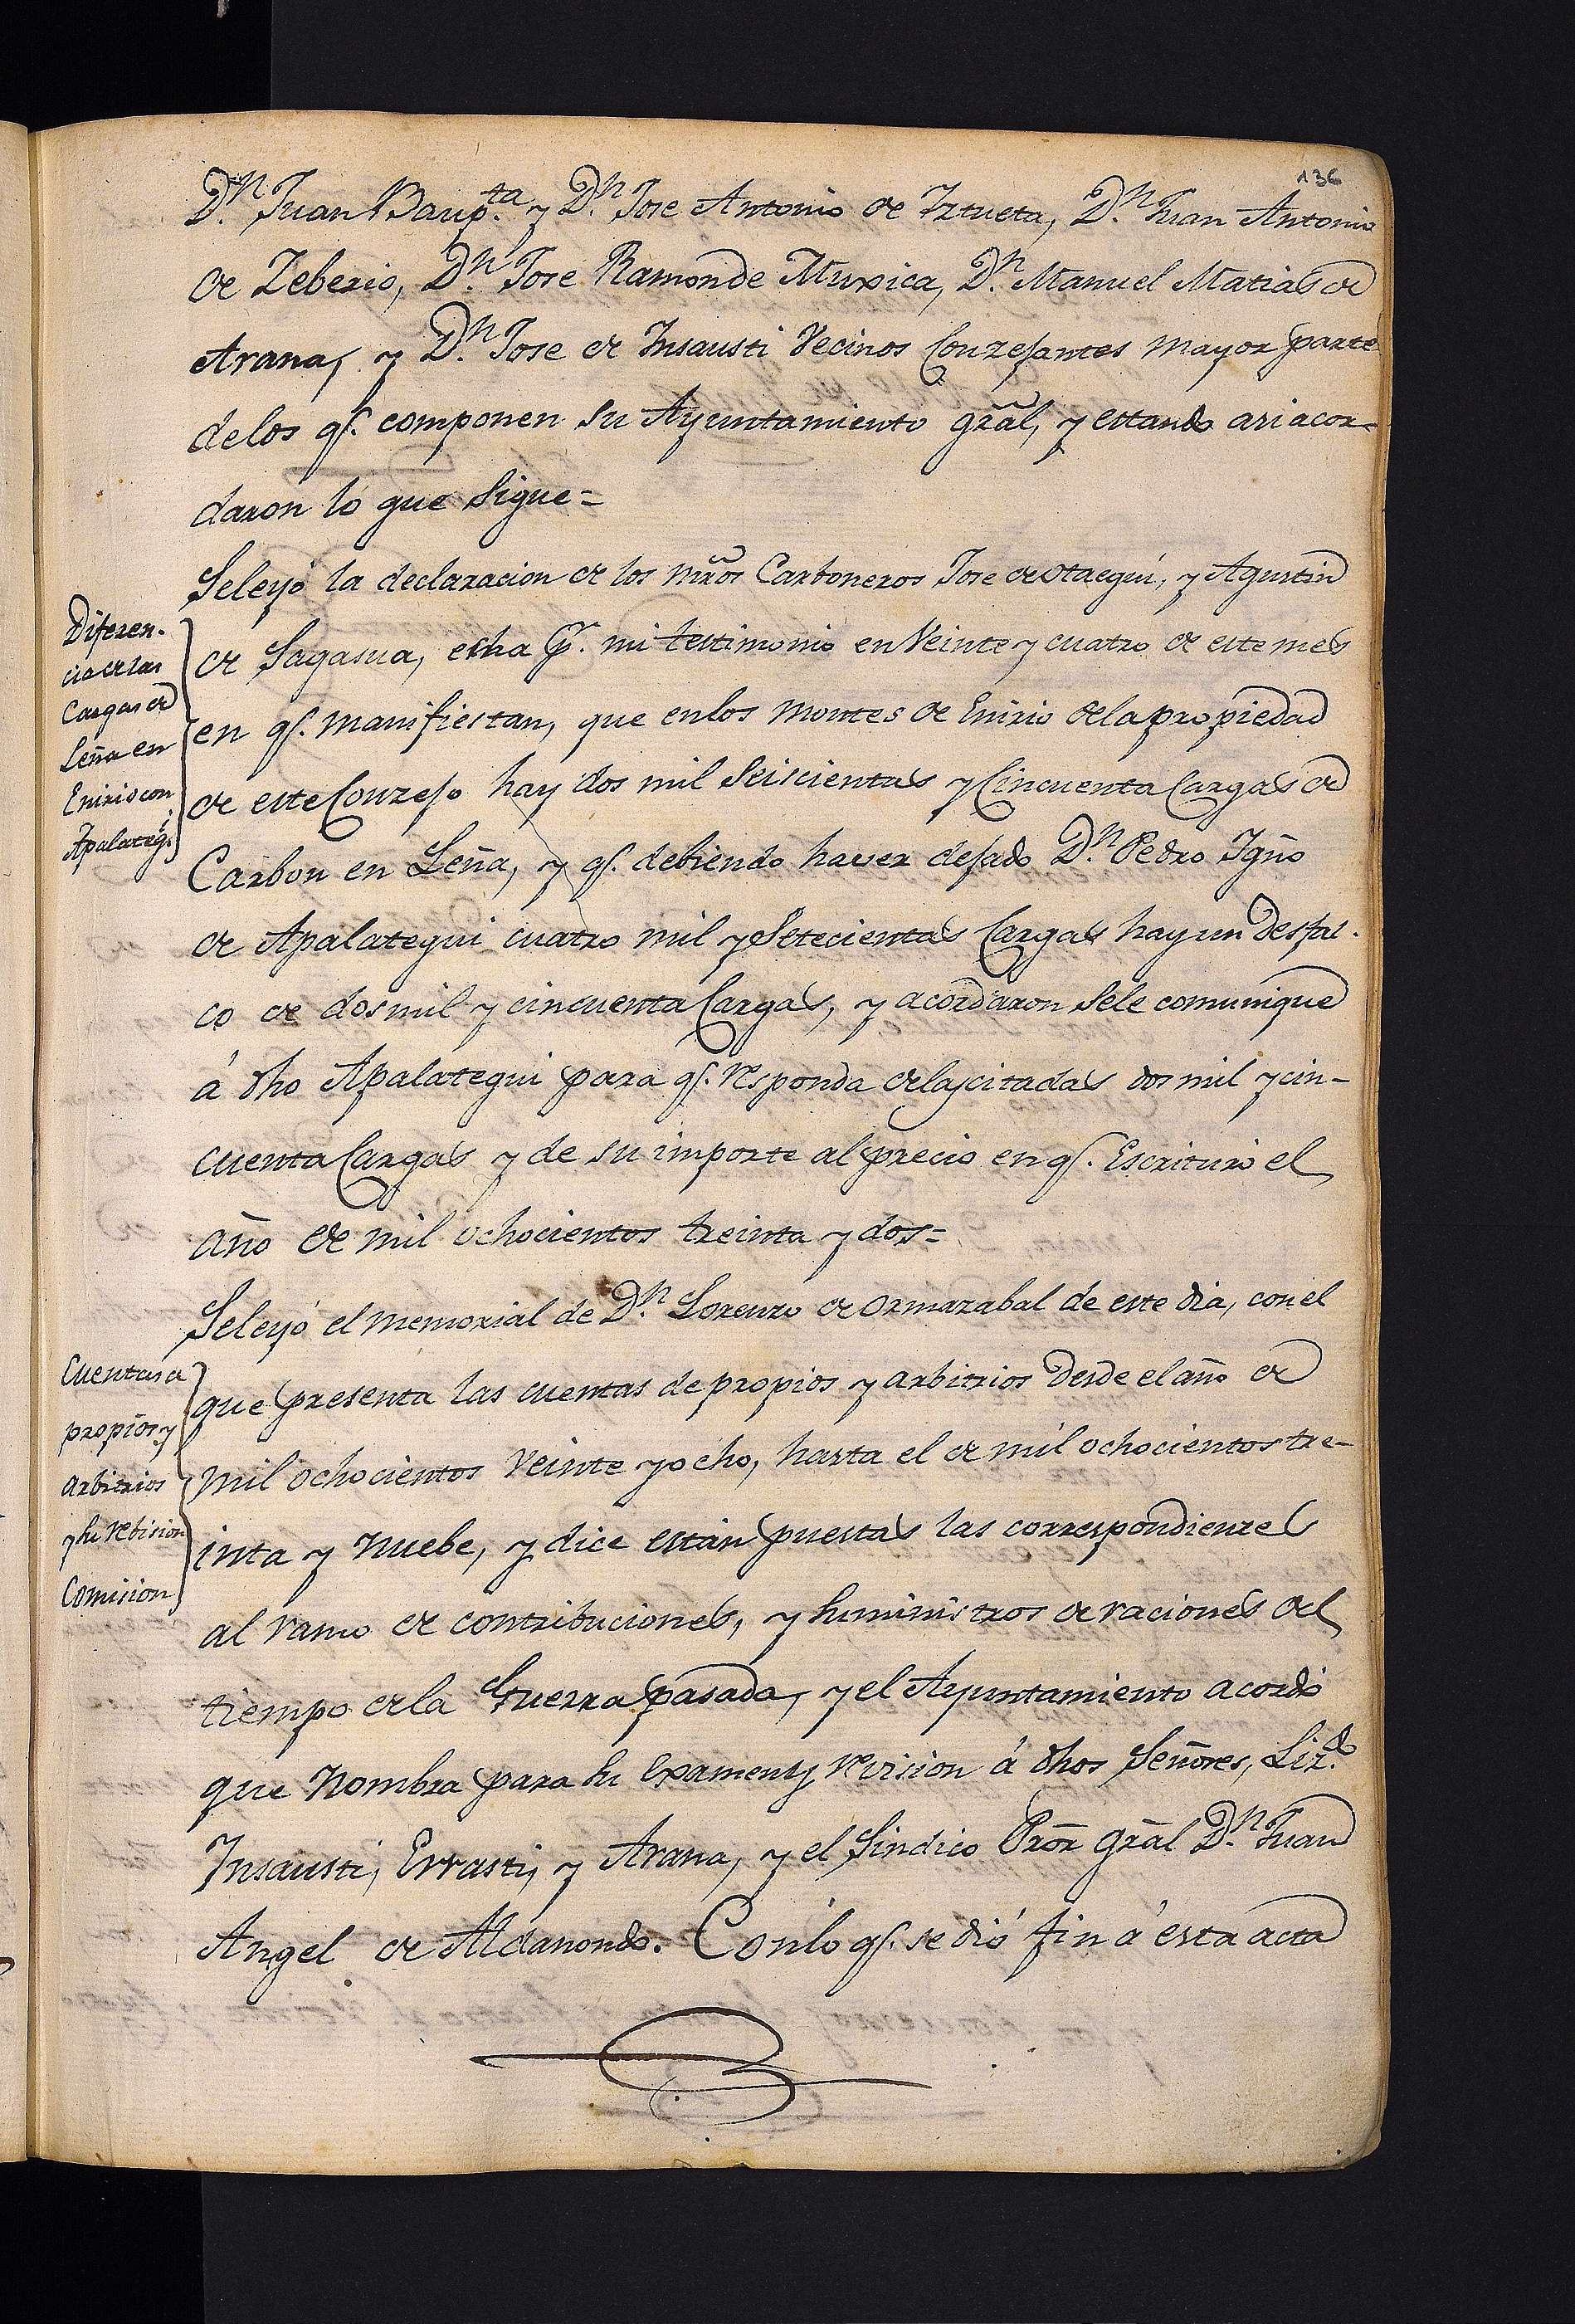 136
D.n Juan Baup.ta y D.n Jose Antonio de Iztueta, D.n Juan Antonio
de Zeberio, D.n Jose Ramon de Muxica, D.n Manuel Matias de
Arana, y D.n Jose de Insausti Vecinos Conzejantes mayor parte
delos q.e componen su Ayuntamiento grãl, y estando asi acor-
daron lo que sigue=
Seleyó la declaracion de los mrõs Carboneros Jose de Otaegui, y Agustin
de Sagasua, esha p.r mi testimonio en Veinte y cuatro de este mes
en q.e manifiestan, que enlos montes de Enirio dela propiedad
de este Conzejo hay dos mil Seiscientas y Cincuenta Cargas de
Carbon en Leña, y q.e debiendo haver dejado D.n Pedro Ignõ
de Apalategui cuatro mil y Setecientas Cargas hay un desfal-
co de dos mil y cincuenta Cargas, y acordaron Sele comunique
á dho Apalategui para q.e responda delas citadas dos mil y cin-
cuenta Cargas y de su importe al precio en q.e Escrituró el
año de mil ochocientos treinta y dos=
Diferen-
cia de las
Cargas de
Leña en
Enirio con
Apalateg.i
Seleyó el memorial de D.n Lorenzo de Ormazabal de este dia, con el
que presenta las cuentas de propios y arbitrios desde el año de
mil ochocientos Veinte y ocho, hasta el de mil ochocientos tre-
inta y nuebe, y dice están puestas las correspondientes
al ramo de contribuciones, y suministros de raciones del
tiempo dela Guerra pasada, y el Ayuntamiento acordó
que nombra para su examen y revision á dhos Señores, Liz.do
Insausti, Errasti, y Arana, y el Sindico Prõr grãl D.n Juan
Angel de Aldanondo. Conlo q.e se dió fin á esta acta
Cuentas de
propios y
arbitrios
y su rebision
Comision